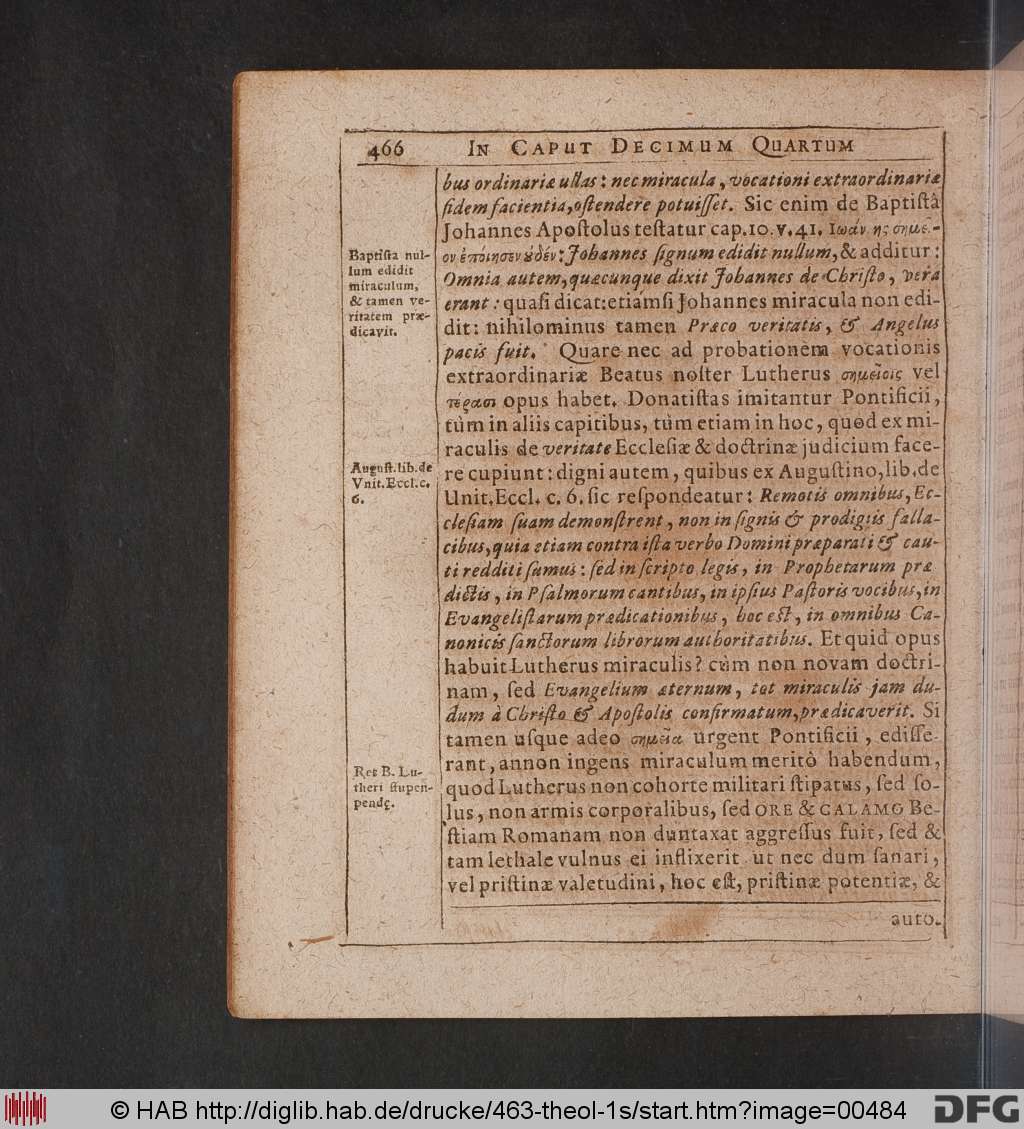 466 IN CAPUT DECIMUM QUARTUM
bus ordinariæ ullas: nec miracula, vocationi extraordinariæ
fidem facientia, oſtendere potuiſſet. Sic enim de Baptiſtâ
Johannes Apoſtolus teſtatur cap.10. v. 41. Ιωάν ης σημεῖ-
ον ἐποίησεν ȣ̓δέν: Johannes ſignum edidit nullum, & additur:
Omnia autem, quæcunque dixit Johannes de Chriſto, vera
erant: quaſi dicat: etiámſi Johannes miracula non edi-
dit: nihilominus tamen Præco veritatis, & Angelus
pacis fuit. Quare nec ad probationem vocationis
extraordinariæ Beatus noſter Lutherus σημείοις vel
τέρασι opus habet. Donatiſtas imitantur Pontificii,
tùm in aliis capitibus, tùm etiam in hoc, quod ex mi-
raculis de veritate Eccleſiæ & doctrinæ judicium face-
re cupiunt: digni autem, quibus ex Auguſtino, lib. de
Unit. Eccl. c. 6. ſic reſpondeatur: Remotis omnibus, Ec-
cleſiam ſuam demonſtrent, non in ſignis & prodigiis falla-
cibus, quia etiam contra iſta verbo Domini præparati & cau-
ti redditi ſumus: ſed in ſcripto legis, in Prophetarum præ
dictis, in Pſalmorum cantibus, in ipſius Paſtoris vocibus, in
Evangeliſtarum prædicationibus, hoc eſt, in omnibus Ca-
nonicis ſanctorum librorum authoritatibus. Et quid opus
habuit Lutherus miraculis? cùm non novam doctri-
nam, ſed Evangelium æternum, tot miraculis jam du-
dum à Chriſto & Apoſtolis confirmatum, prædicaverit. Si
tamen uſque adeo σημεῖα urgent Pontificii, ediſſe-
rant, annon ingens miraculum meritò habendum,
quod Lutherus non cohorte militari ſtipatus, ſed ſo-
lus, non armis corporalibus, ſed ORE & CALAMO Be-
ſtiam Romanam non duntaxat aggreſſus fuit, ſed &
tam lethale vulnus ei inflixerit ut nec dum ſanari,
vel priſtinæ valetudini, hoc eſt, priſtinæ potentiæ, &
auto-
Baptiſta nul-
lum edidit
miraculum,
& tamen ve-
ritatem præ-
dicavit.
Auguſt. lib. de
Vnit. Eccl. c.
6.
Res B. Lu-
theri ſtupen-
pendę.
© HAB http://diglib.hab.de/drucke/463-theol-1s/start.htm?image=00484
DFG